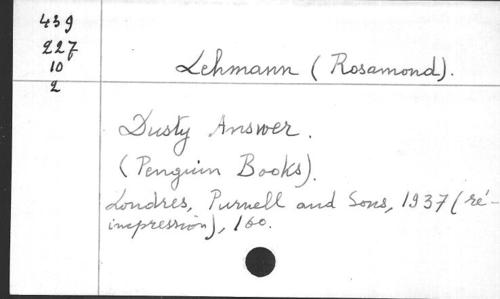 439
227
10
2
Lehmann (Rosamond).
Dusty Answer.
(Penguin Books).
Londres, Purnell and Sons, 1937 (ré-
impression), 160.